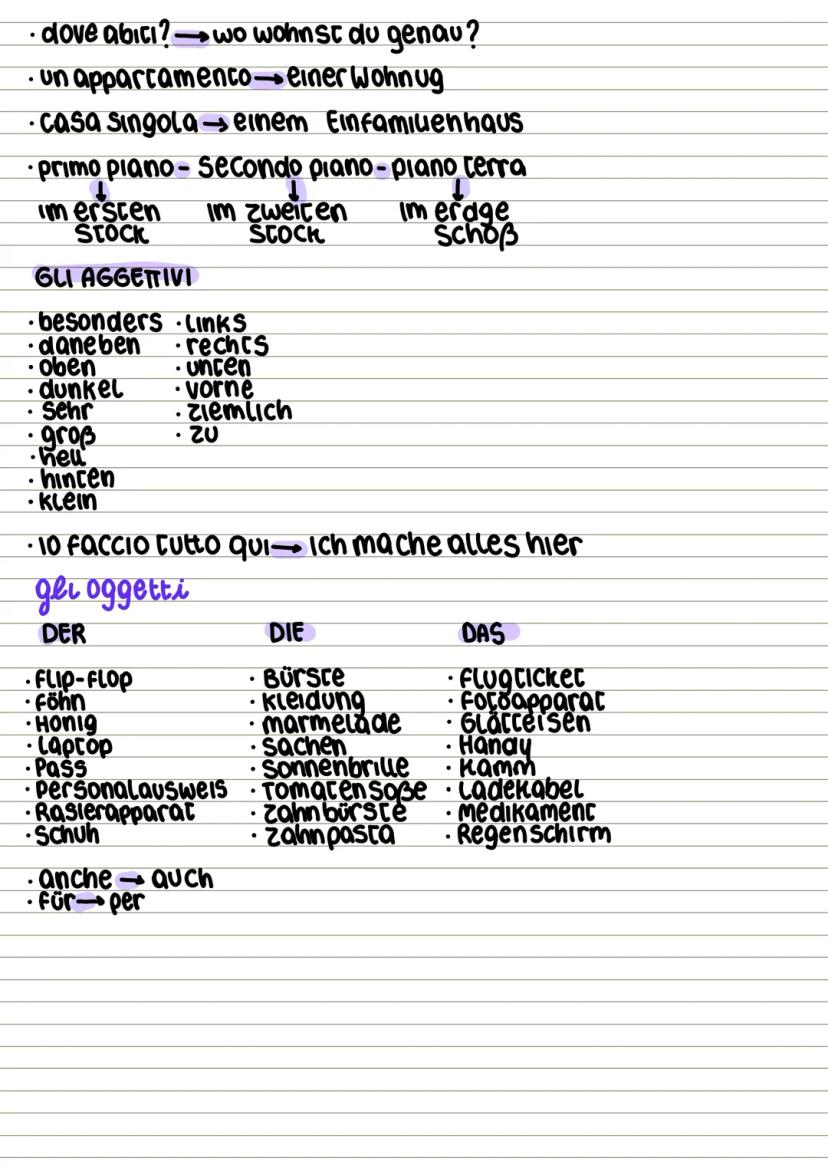 · dove abiti? → wo wohnst du genau?
· un appartamento → einer Wohnug
· casa singola → einem Einfamilienhaus
· primo piano - secondo piano - piano terra
↓ ↓ ↓
im ersten im zweiten im erdge
Stock Stock schoß
GLI AGGETTIVI
· besonders · links
· daneben · rechts
· oben · unten
· dunkel · vorne
· sehr · ziemlich
· groß · zu
· neu
· hinten
· klein
· io faccio tutto qui → ich mache alles hier
gli oggetti
DER DIE DAS
· Flip-Flop · Bürste · Flugticket
· Föhn · Kleidung · Fotoapparat
· Honig · marmelade · Glätteisen
· Laptop · Sachen · Handy
· Pass · Sonnenbrille · Kamm
· Personalausweis · Tomatensoße · Ladekabel
· Rasierapparat · Zahnbürste · Medikament
· Schuh · Zahnpasta · Regenschirm
· anche → auch
· für → per